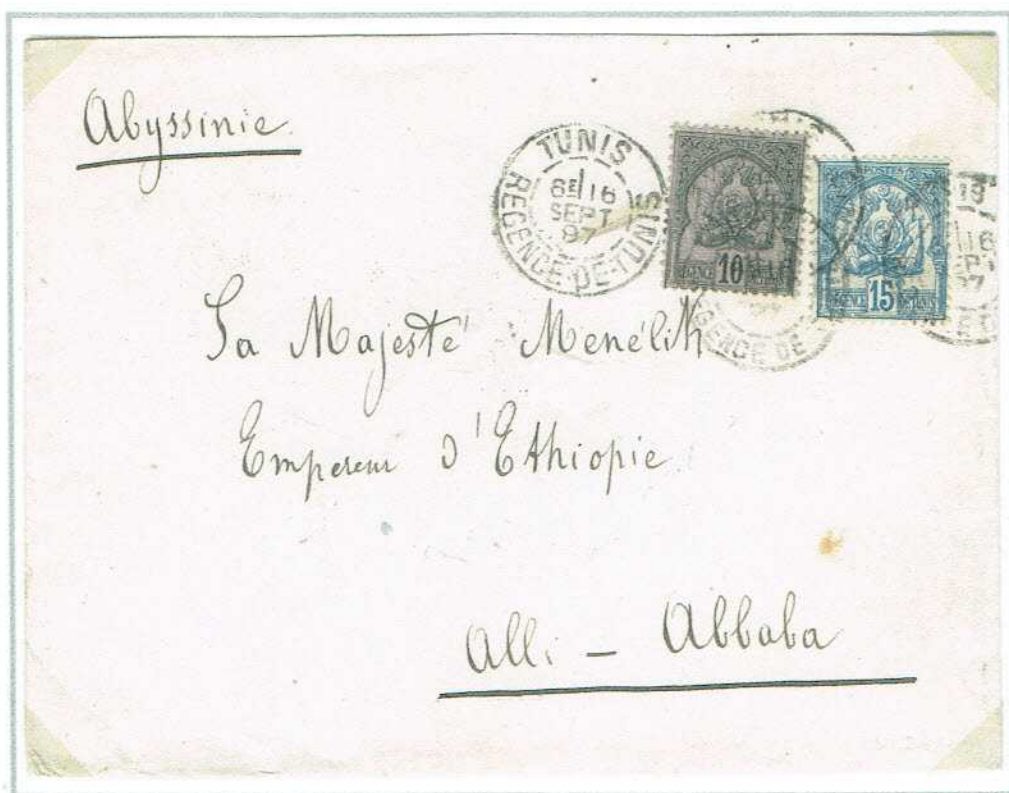 Abyssinie
TUNIS
8E/16
SEPT
97
REGENCE-DE-TUNIS
10
REGENCE DE TUNIS
15
REGENCE DE
Sa Majesté Menélik
Empereur d'Ethiopie
Alli - Abbaba